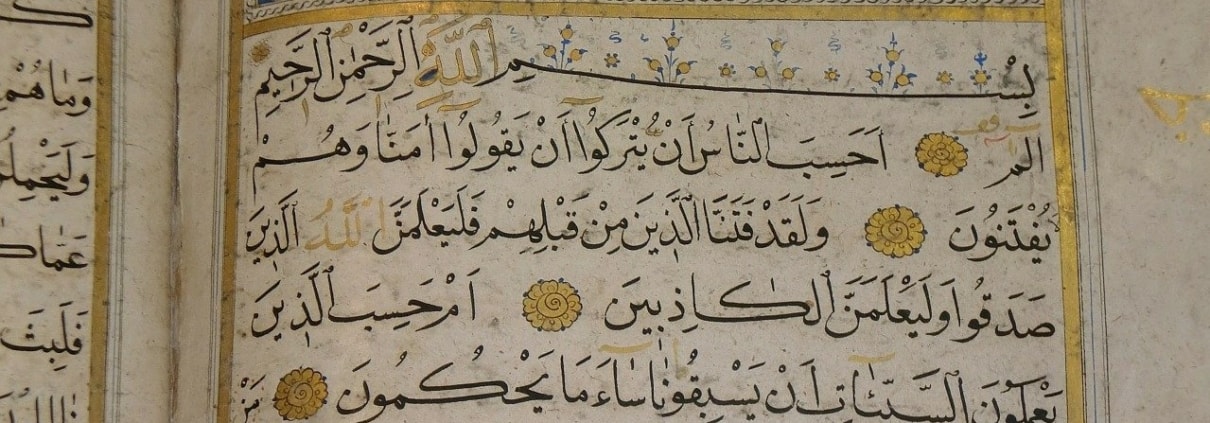 بِسْمِ اللَّهِ الرَّحْمٰنِ الرَّحِيمِ
الم اَحَسِبَ النَّاسُ أَنْ يُتْرَكُوا أَنْ يَقُولُوا اٰمَنَّا وَهُمْ
يُفْتَنُونَ وَلَقَدْ فَتَنَّا الَّذِينَ مِنْ قَبْلِهِمْ فَلَيَعْلَمَنَّ اللَّهُ الَّذِينَ
صَدَقُوا وَلَيَعْلَمَنَّ الْكَاذِبِينَ اَمْ حَسِبَ الَّذِينَ
يَعْمَلُونَ السَّيِّـَٔاتِ اَنْ يَسْبِقُونَا سَاءَ مَا يَحْكُمُونَ مَنْ
وَمَا هُمْ
وَلَيَحْمِلُنَّ
عَمَّا كَا
فَلَبِثَ